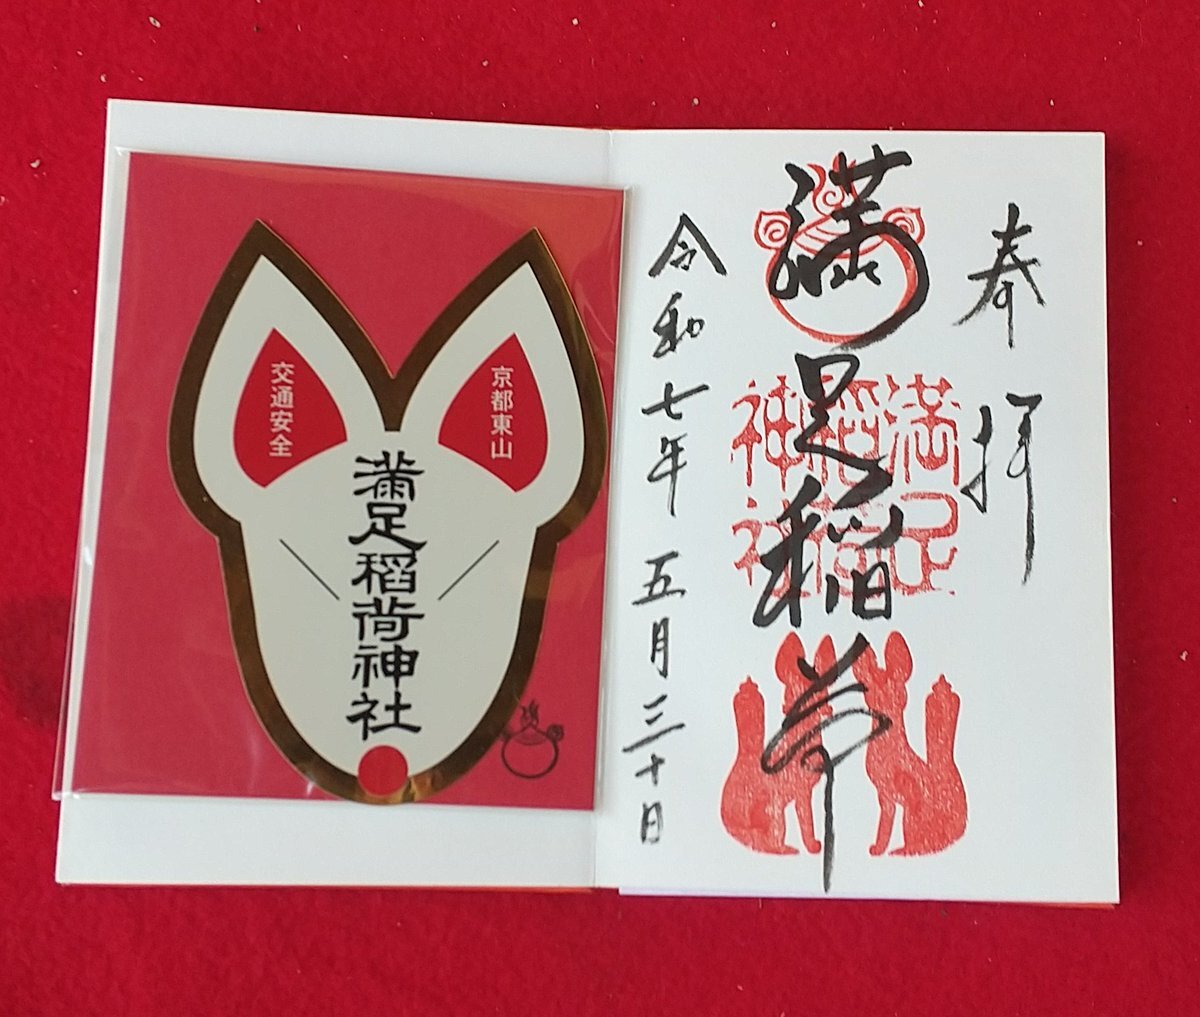 奉拝
満足稲荷
満足
稲荷
神社
令和七年五月三十日
京都東山
交通安全
満足稲荷神社